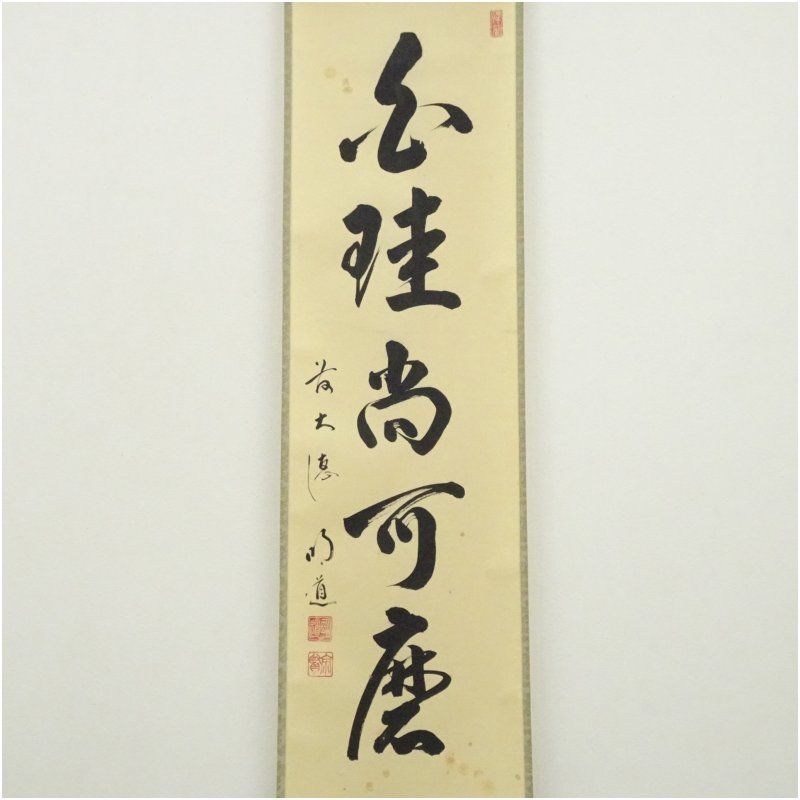 白珪尚可磨
前大徳 明道